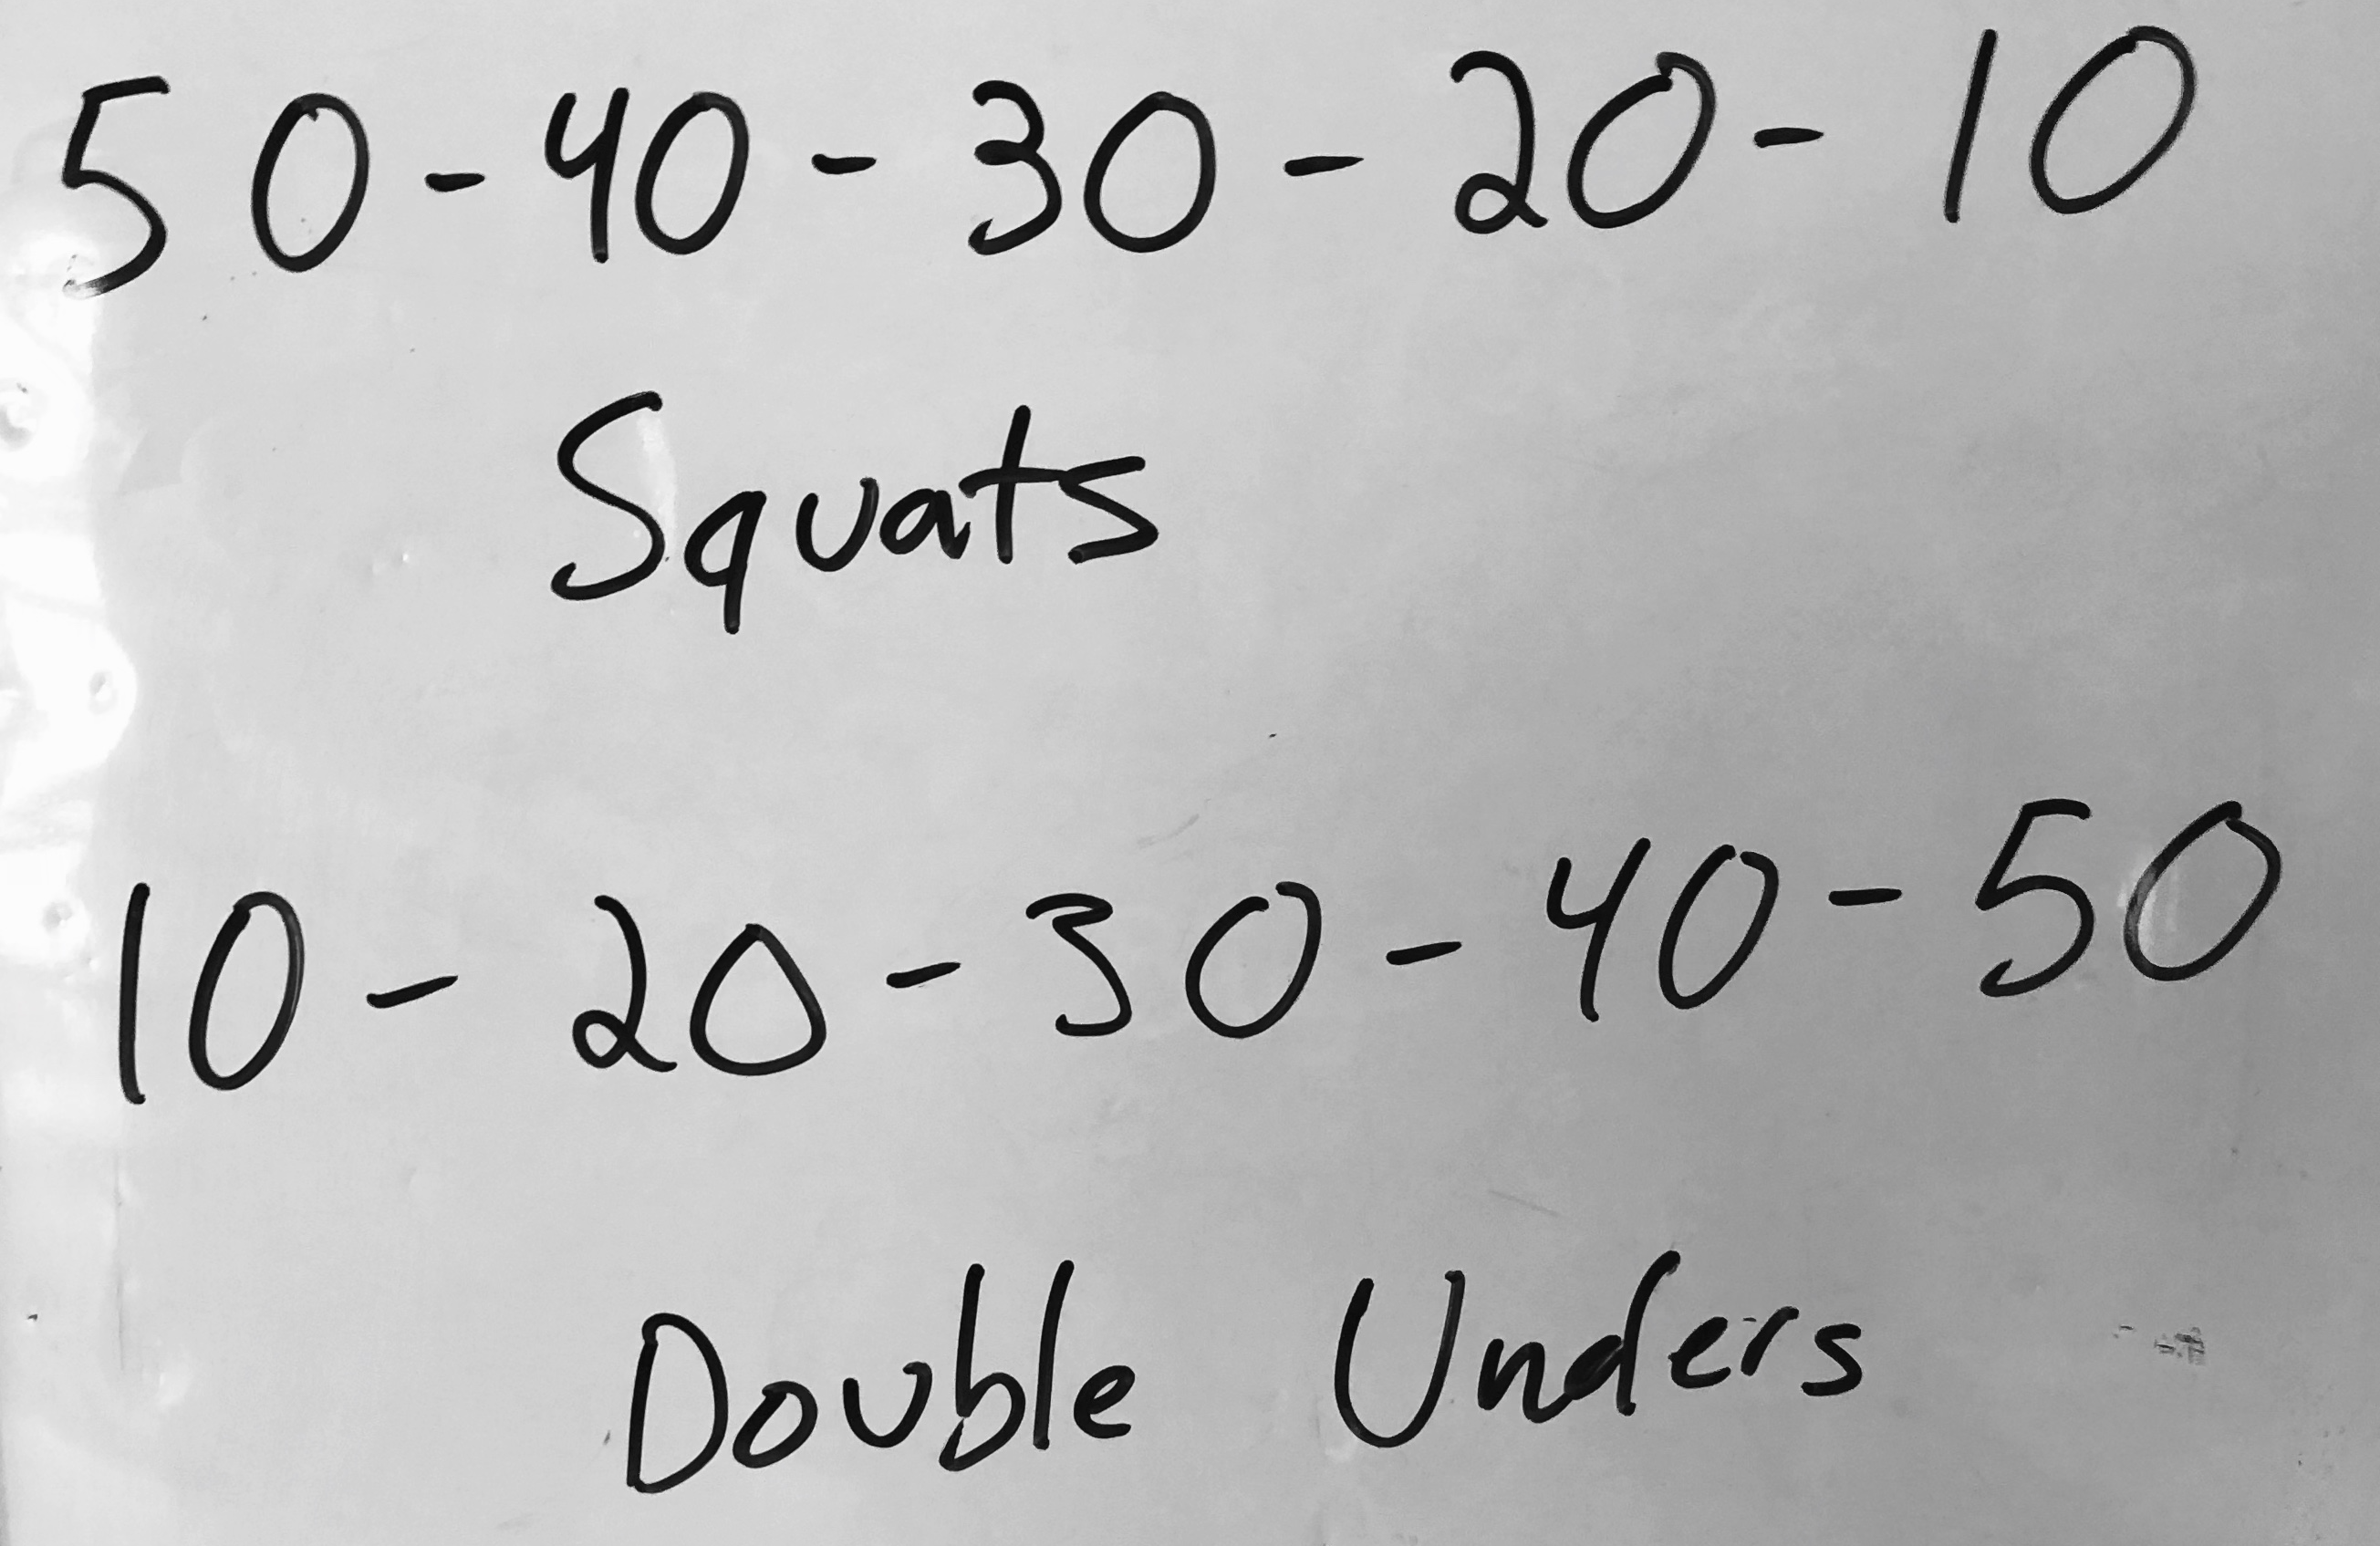 50 - 40 - 30 - 20 - 10
Squats
10 - 20 - 30 - 40 - 50
Double Unders